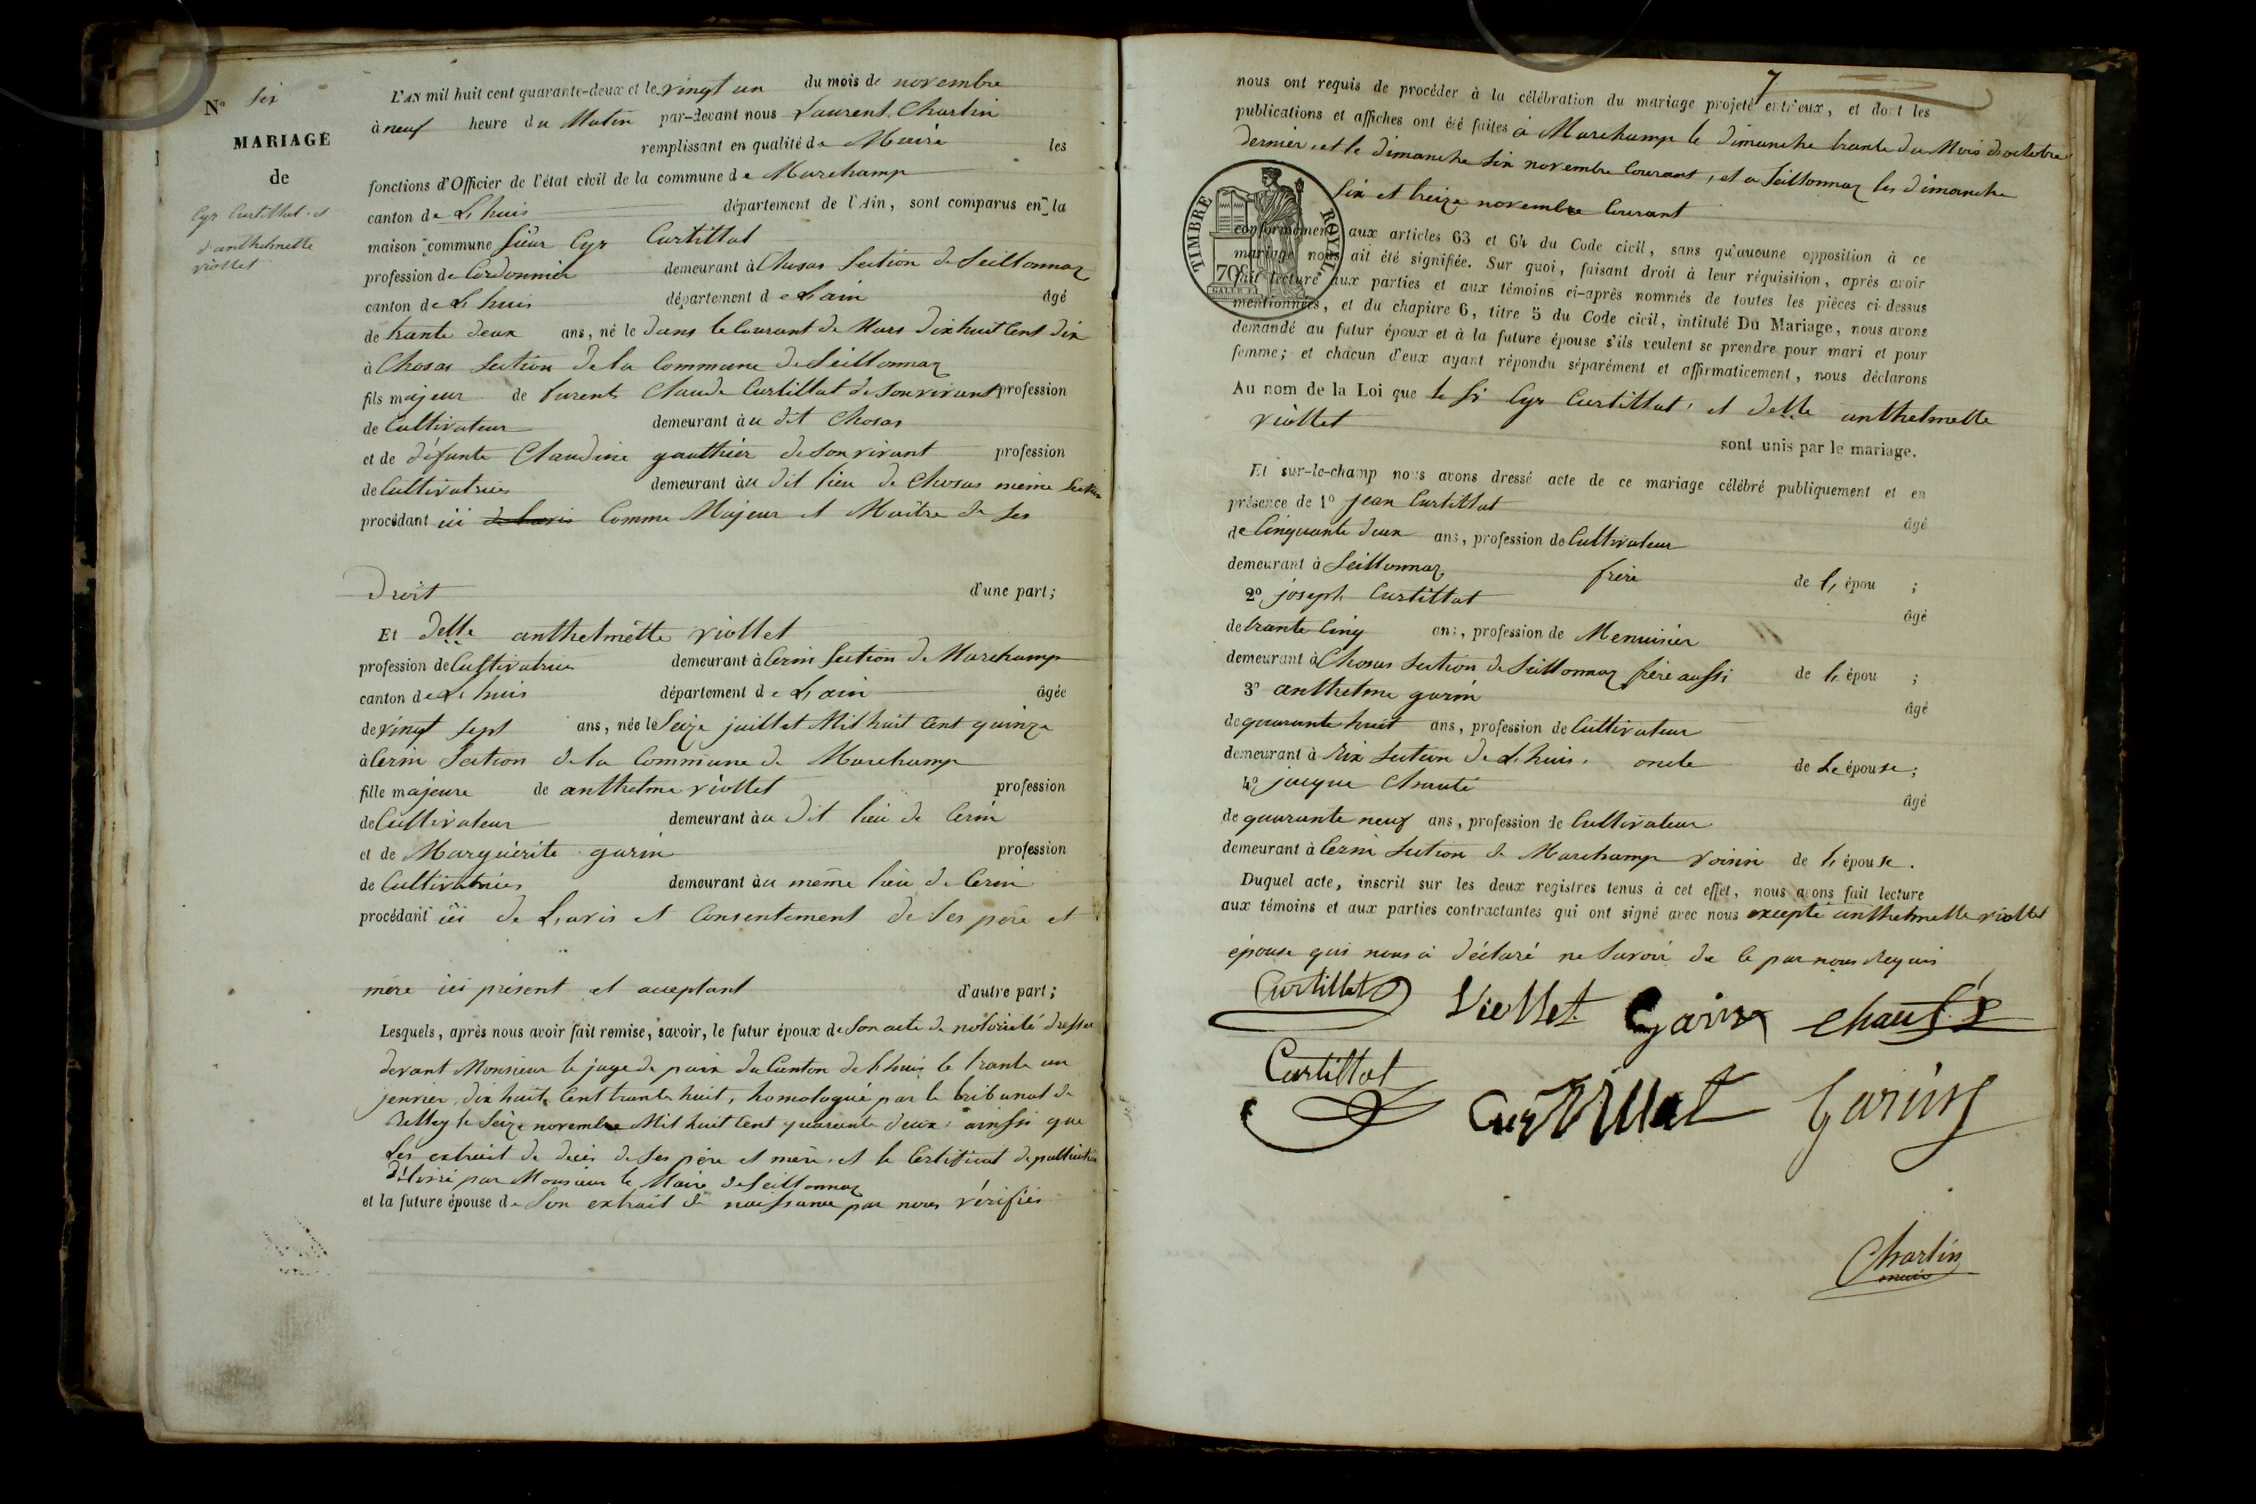 N° six
MARIAGE
de
Cyr Curtillat et
d'anthelmette
viollet
L'AN mil huit cent quarante-deux et le vingt un du mois de novembre
à neuf heure du Matin par-devant nous Laurent Charlin
remplissant en qualité de Maire les
fonctions d'Officier de l'état civil de la commune de Marchamp
canton de Lhuis département de l'Ain, sont comparus en la
maison commune Sieur Cyr Curtillat
profession de Cordonnier demeurant à Chosas Section de Seillonnaz
canton de Lhuis département de Lain âgé
de trante deux ans, né le dans le Courant de Mars dix huit Cent dix
à Chosas Section de la Commune de Seillonnaz
fils majeur de furent Claude Curtillat de Son vivant profession
de Cultivateur demeurant àu dit Chosas
et de défunte Claudine gauthier de Son vivant profession
de Cultivatrice demeurant àu dit lieu de Chosas même Section
procédant ici Comme Majeur et Maître de Ses
droit d'une part;
Et delle anthelmette viollet
profession de Cultivatrice demeurant à Cerin Section de Marchamp
canton de Lhuis département de Lain âgée
de vingt sept ans, née le Seize juillet Mil huit Cent quinze
à Cerin Section de la Commune de Marchamp
fille majeure de anthelme viollet profession
de Cultivateur demeurant àu dit lieu de Cerin
et de Marguérite garin profession
de Cultivatrice demeurant àu même lieu de Cerin
procédant ici de Lavis et Consentement de Ses père et
mère ici présent et acceptant d'autre part;
Lesquels, après nous avoir fait remise, savoir, le futur époux de Son acte de notoriété dressé
devant Monsieur le juge de paix du Canton de Lhuis le trante un
jenvier dix huit Cent trante huit, homologué par le tribunal de
Belley le Seize novembre Mil huit Cent quarante deux, ainssi que
Les extrait de décès de Ses père et mère, et le Certificat de publication
délivré par Monsieur le Maire de Seillonnaz
et la future épouse de Son extrait de naissance par nous vérifiés
7
nous ont requis de procéder à la célébration du mariage projeté entr'eux, et dont les
publications et affiches ont été faites à Marchamp le dimanche trante du Mois doctobre
dernier, et le dimanche Six novembre Courant, et a Seillonnaz les dimanche
Six et treize novembre Courant
TIMBRE ROYAL
70c
conformément aux articles 63 et 64 du Code civil, sans qu'aucune opposition à ce
mariage nous ait été signifiée. Sur quoi, faisant droit à leur réquisition, après avoir
fait lecture aux parties et aux témoins ci-après nommés de toutes les pièces ci-dessus
mentionnées, et du chapitre 6, titre 5 du Code civil, intitulé Du Mariage, nous avons
demandé au futur époux et à la future épouse s'ils veulent se prendre pour mari et pour
femme; et chacun d'eux ayant répondu séparément et affirmativement, nous déclarons
Au nom de la Loi que le Sr Cyr Curtillat, et delle anthelmette
viollet
sont unis par le mariage.
Et sur-le-champ nous avons dressé acte de ce mariage célébré publiquement et en
présence de 1° jean Curtillat âgé
de Cinquante deux ans, profession de Cultivateur
demeurant à Seillonnaz frère de L, épou ;
2° joseph Curtillat âgé
de trante Cinq ans, profession de Menuisier
demeurant à Chosas Section de Seillonnaz frère aussi de L, épou ;
3° anthelme garin âgé
de quarante huit ans, profession de Cultivateur
demeurant à Rix Section de Lhuis, oncle de Le épouse;
4° jacque Chanté âgé
de quarante neuf ans, profession de Cultivateur
demeurant à Cerin Section de Marchamp voisin de L, épouse.
Duquel acte, inscrit sur les deux registres tenus à cet effet, nous avons fait lecture
aux témoins et aux parties contractantes qui ont signé avec nous excepté anthelmette viollet
épouse qui nous à déclaré ne Savoir de Ce par nous Requis
Curtillat Viollet Garin
Curtillat Curtillat Garin
Charlin
maire